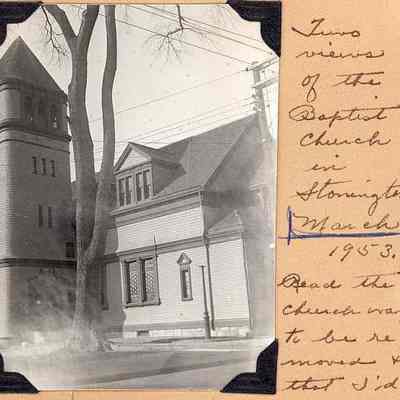 Two
views
of the
Baptist
church
in
Stoningto
March
1953.
Read the
church was
to be re
moved &
that I'd